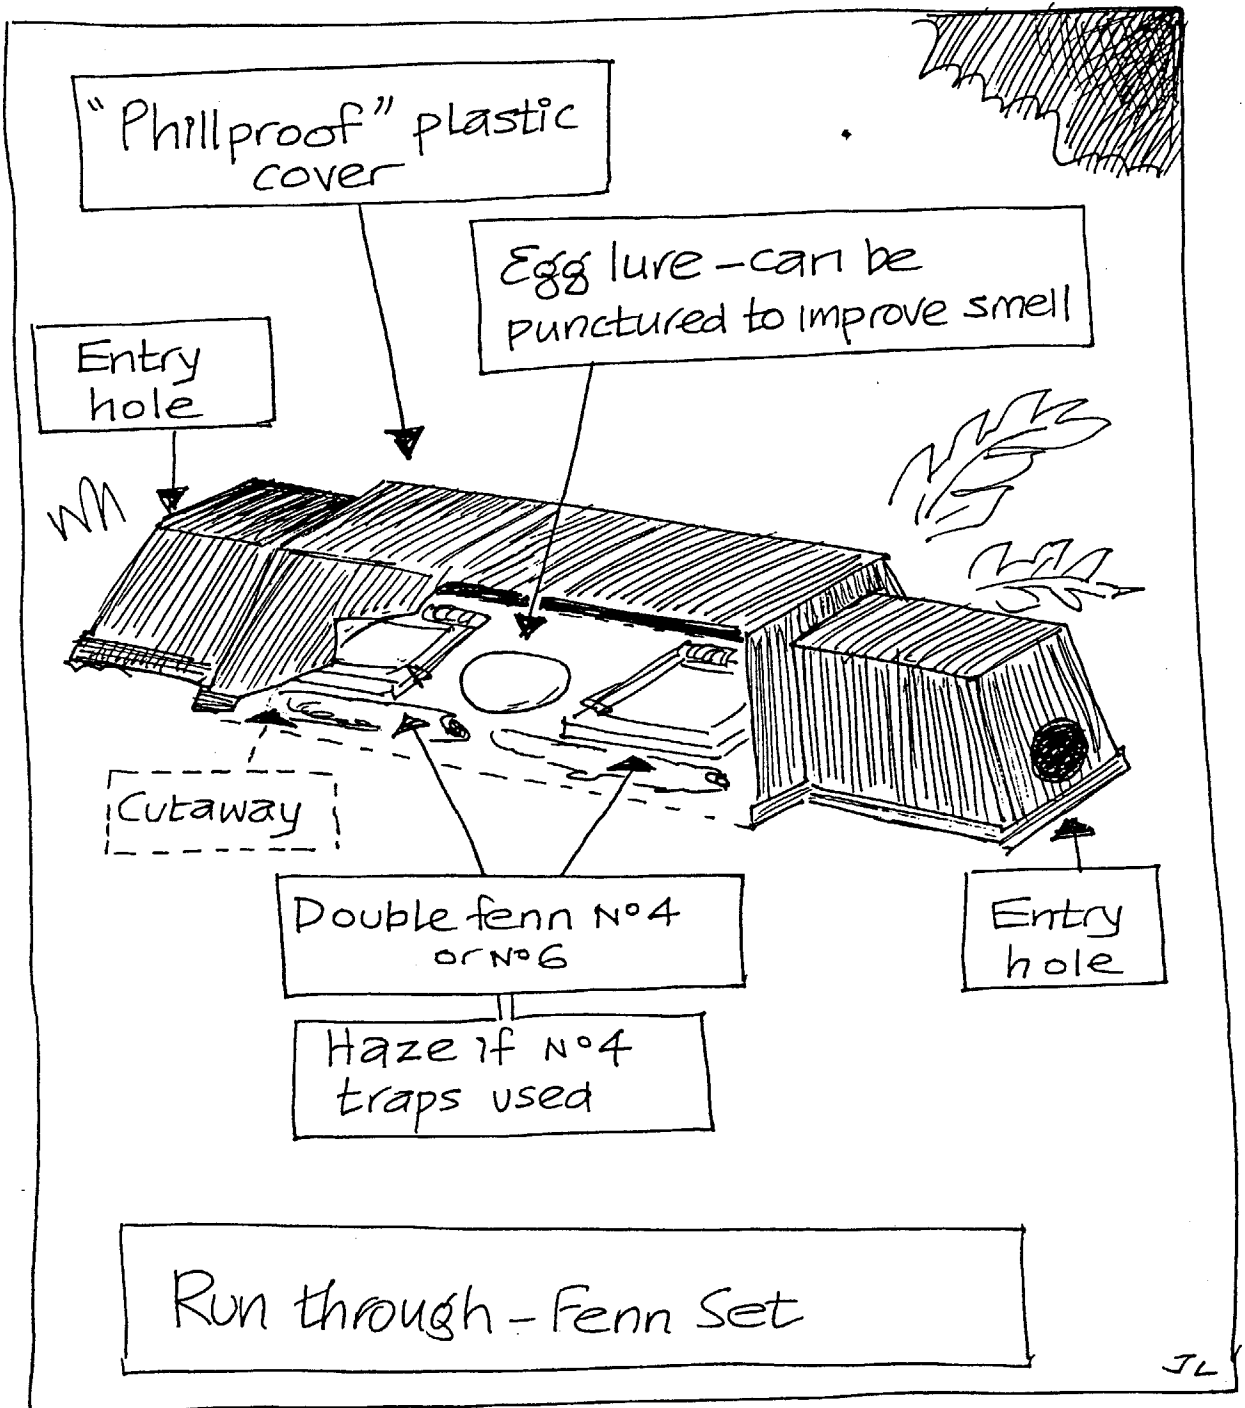 "Phillproof" plastic
cover
Egg lure – can be
punctured to improve smell
Entry
hole
Cutaway
Double fenn Nº4
or Nº6
Entry
hole
Haze if Nº4
traps used
Run through – Fenn Set
JL